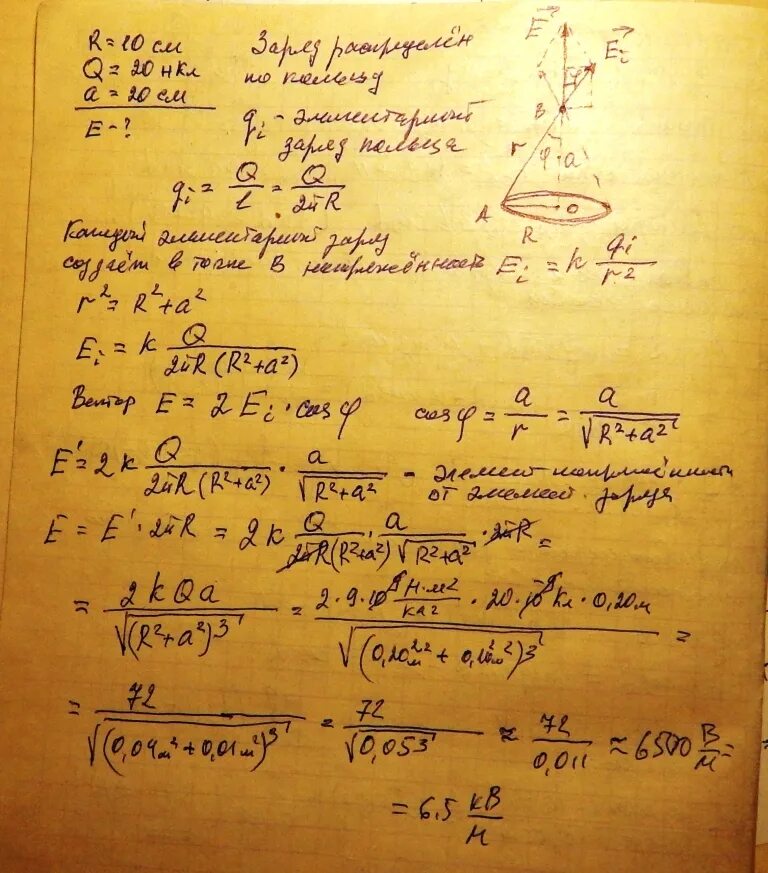 R = 10 см
Q = 20 нКл
a = 20 см
E - ?
Заряд распределён
по кольцу
qi - элементарный
заряд кольца
E⃗
E⃗i
φ
B
r
φ a
A
O
R
qi = Q/l = Q/2πR
Каждый элементарный заряд
создаёт в точке B напряжённость Ei = k qi/r²
r² = R² + a²
Ei = k Q/2πR(R²+a²)
Вектор E = 2Ei·cosφ cosφ = a/r = a/√(R²+a²)
E' = 2k Q/2πR(R²+a²) · a/√(R²+a²) - элемент напряжённости
от элемент. заряда
E = E'·2πR = 2k Q/2πR(R²+a²) · a/√(R²+a²) · 2πR =
= 2kQa/√(R²+a²)³ = 2·9·10⁹ Н·м²/Кл² · 20·10⁻⁹ Кл · 0,20м / √(0,20²м² + 0,10²м²)³ =
= 72/√(0,04м² + 0,01м²)³ = 72/√0,05³ ≈ 72/0,011 ≈ 6500 В/м =
= 6,5 кВ/м